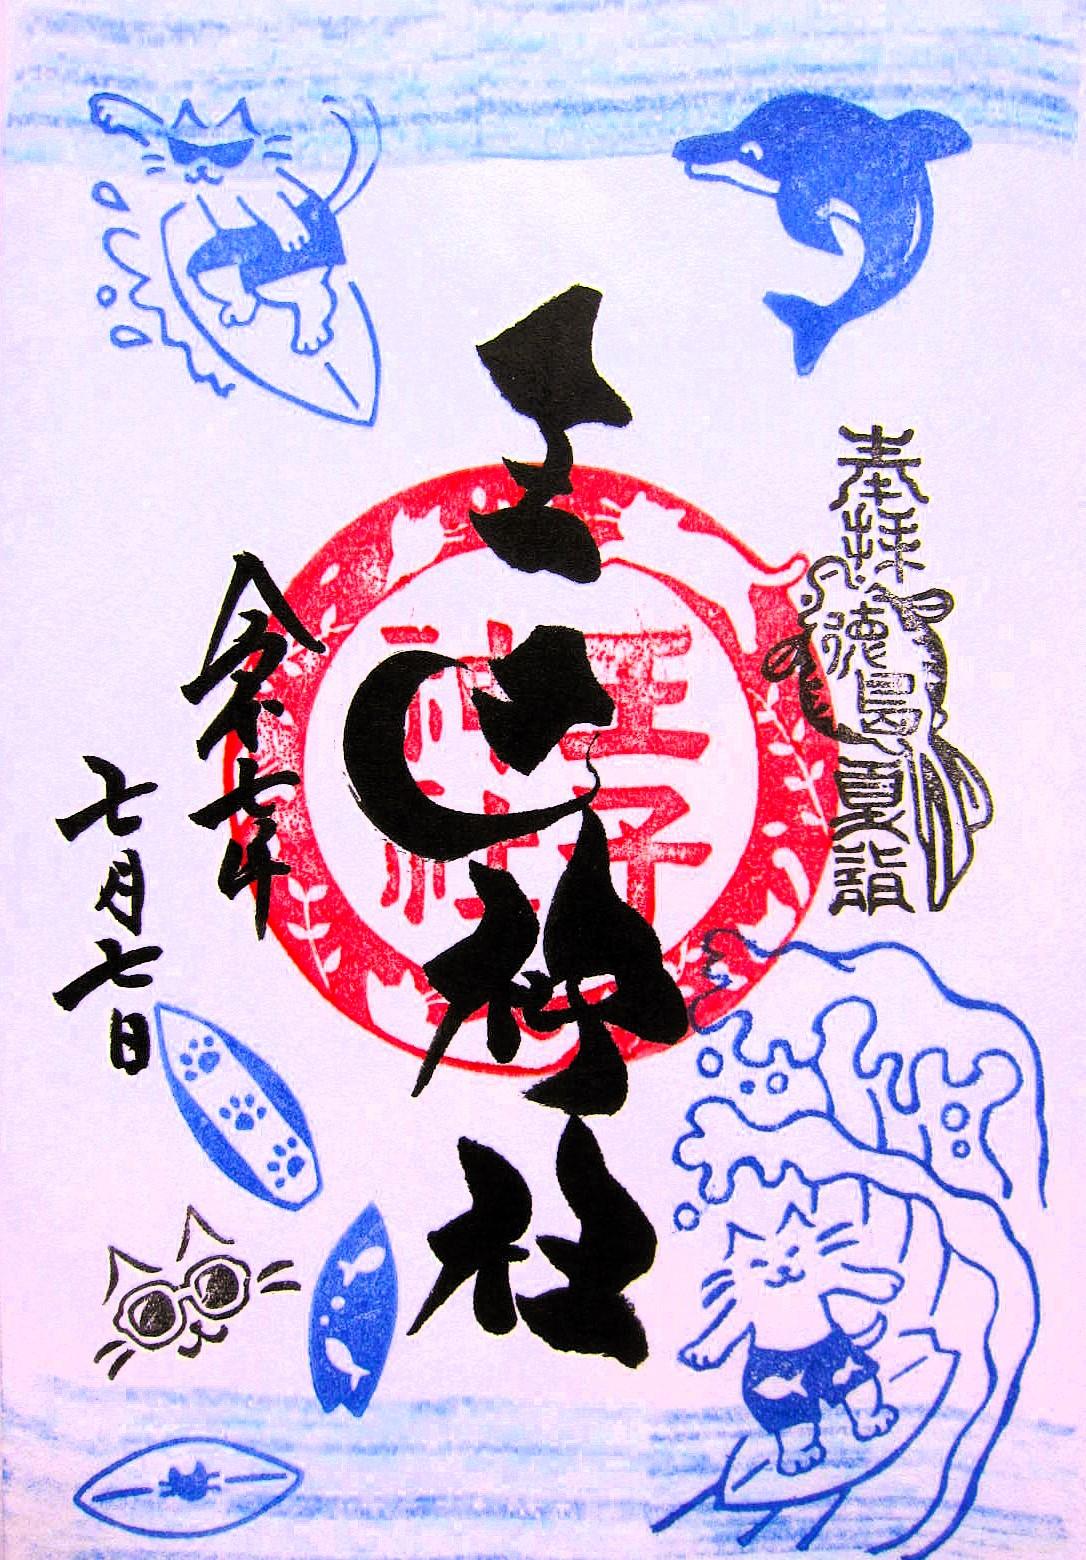 奉拝徳島夏詣
王子神社
王子
神社
令和七年
七月七日